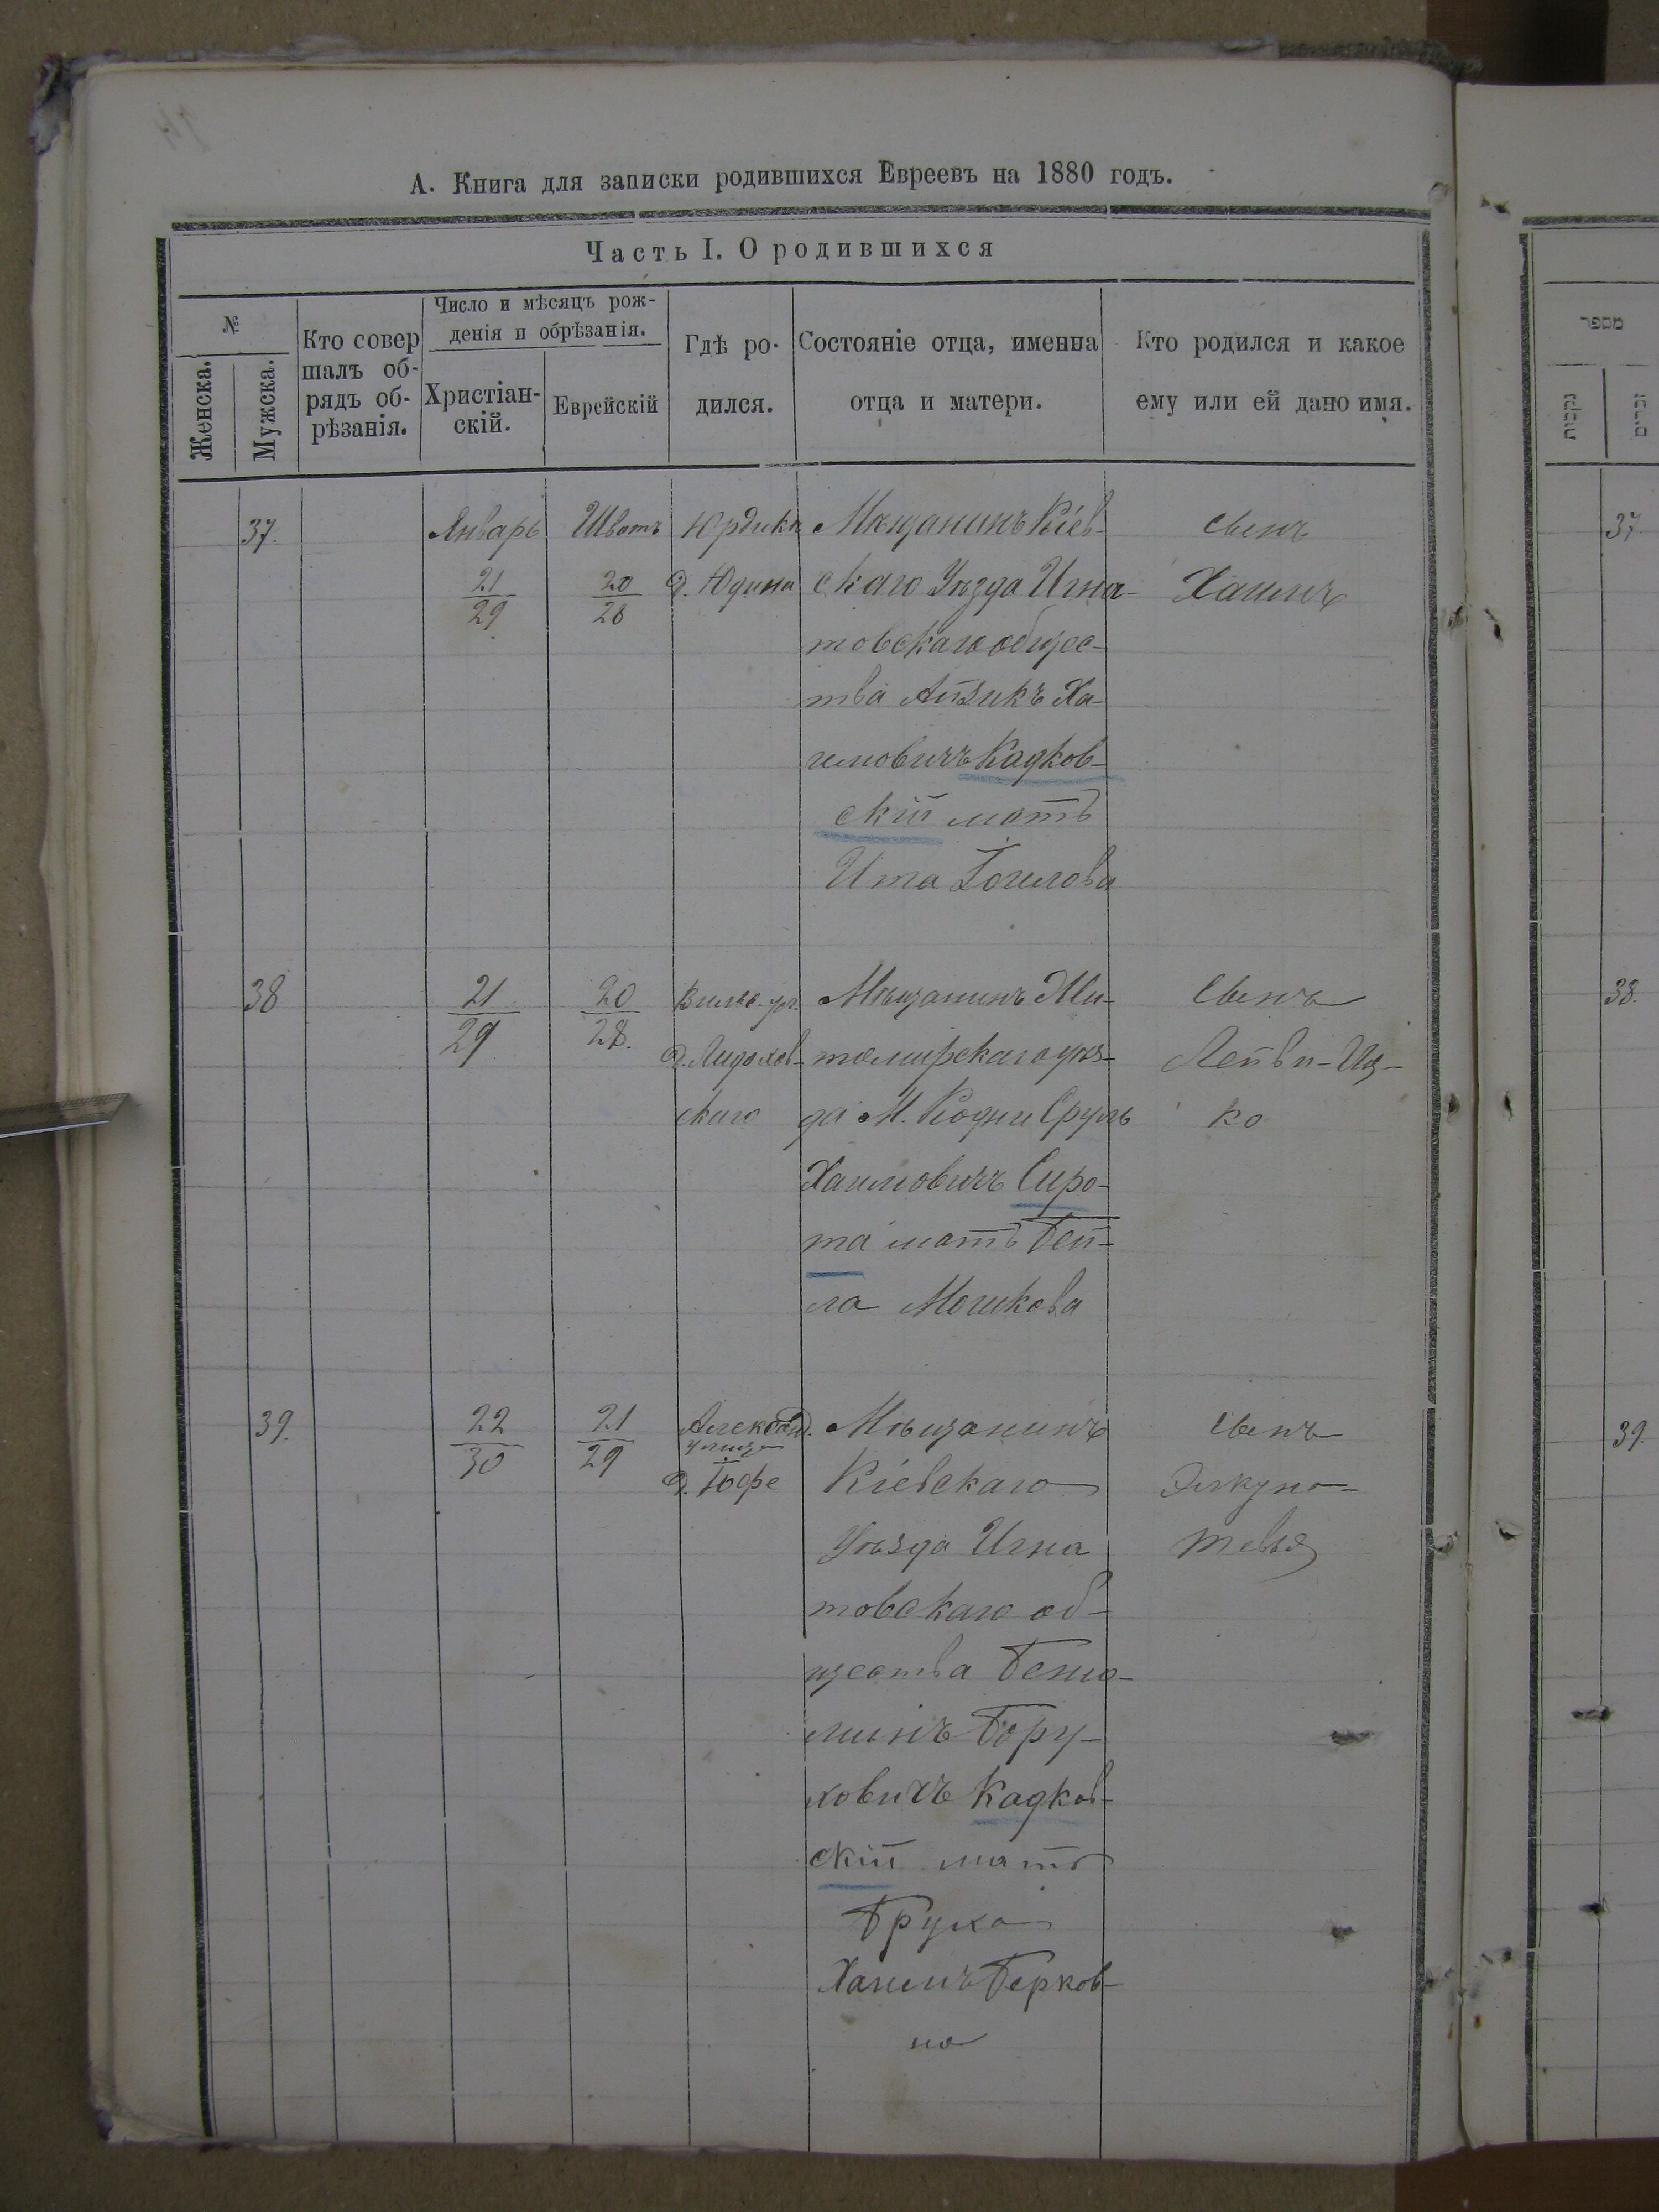 А. Книга для записки родившихся Евреевъ на 1880 годъ.
Часть I. О родившихся
№
Женска.
Мужска.
Кто совер
шалъ об-
рядъ об-
рѣзанія.
Число и мѣсяцъ рож-
денія и обрѣзанія.
Христіан-
скій.
Еврейскій
Гдѣ ро-
дился.
Состояніе отца, именна
отца и матери.
Кто родился и какое
ему или ей дано имя.
37.
Январь
21
29
Шватъ
20
28
д. Юдина
Мѣщанинъ Кіев-
скаго Уѣзда Игна-
товскаго общес-
тва Айзикъ Ха-
имовичъ Кадков-
скій мать
Ита
Сынъ
Хаимъ
38
21
29
20
28.
скаго
Мѣщанинъ Жи-
томирскаго уѣз-
да М. Кодни Сруль
Хаимовичъ Сиро-
та мать Бей-
ла Мошкова
Сынъ
Лейви-Иц-
ко
39.
22
30
21
29
Александ.
улица
д. Іофе
Мѣщанинъ
Кіевскаго
Уѣзда Игна
товскаго об-
щества Беню-
минъ Бору-
ховичъ Кадков-
скій мать
Бруха
Хаимъ Берков-
на
Сынъ
Элкуно-
Тевья
מספר
נקבות
זכרים
37.
38.
39.